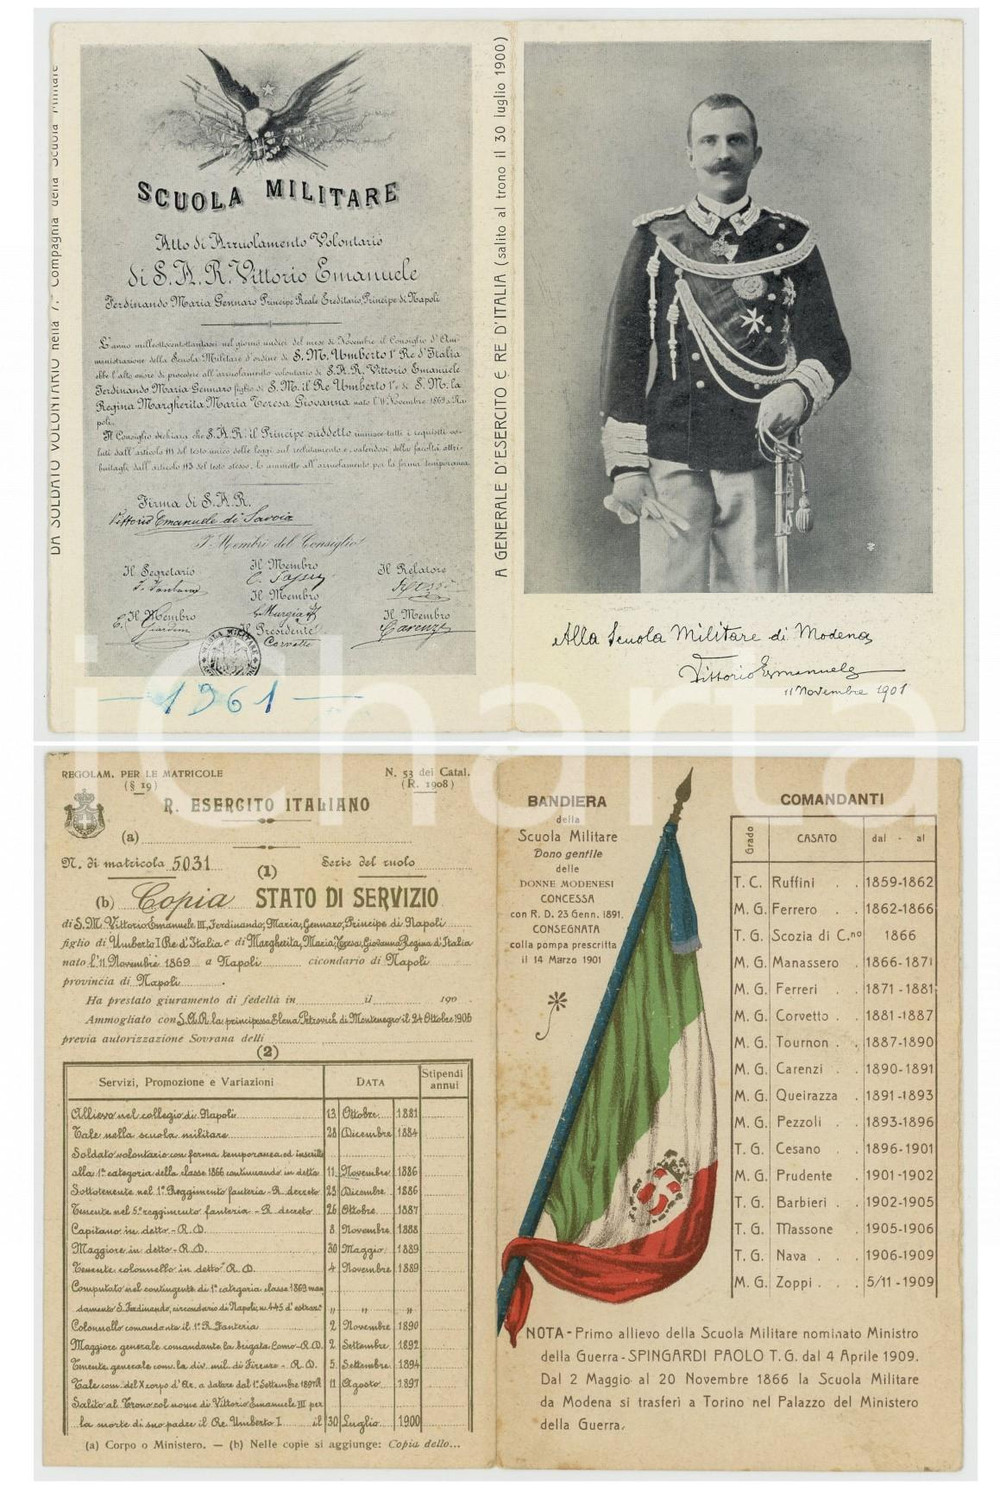 DA SOLDATO VOLONTARIO nella 7. Compagnia della Scuola Militare
SCUOLA MILITARE
Atto di Arruolamento Volontario
di S.A.R. Vittorio Emanuele
Ferdinando Maria Gennaro Principe Reale Ereditario, Principe di Napoli
L'anno milleottocentottantasei nel giorno undici del mese di Novembre il Consiglio d'Am-
ministrazione della Scuola Militare d'ordine di S.M. Umberto 1º Re d'Italia
ebbe l'alto onore di procedere all'arruolamento volontario di S.A.R. Vittorio Emanuele
Ferdinando Maria Gennaro figlio di S.M. il Re Umberto 1º e di S.M. la
Regina Margherita Maria Teresa Giovanna nato l'11 Novembre 1869 a Na
poli.
Il Consiglio dichiara che S.A.R. il Principe suddetto riunisce tutti i requisiti vo-
luti dall'articolo 111 del testo unico delle leggi sul reclutamento e, valendosi della facoltà attri-
buitagli dall'articolo 113 del testo stesso, lo ammette all'arruolamento per la ferma temporanea
Firma di S.A.R.
Vittorio Emanuele di Savoia
I Membri del Consiglio
Il Segretario
Il Membro
Il Relatore
Il Membro
Il Membro
Il Membro
Il Presidente
Corvetto
Carenzi
SCUOLA MILITARE
1961
A GENERALE D'ESERCITO E RE D'ITALIA (salito al trono il 30 luglio 1900)
Alla Scuola Militare di Modena
Vittorio Emanuele
11 Novembre 1901
iCharta
REGOLAM. PER LE MATRICOLE
(§ 19)
N. 53 dei Catal.
(R. 1908)
R. ESERCITO ITALIANO
(a)
N. di matricola 5031 (1) Serie del ruolo
(b) Copia STATO DI SERVIZIO
di S.M. Vittorio Emanuele III, Ferdinando, Maria, Gennaro, Principe di Napoli
figlio di Umberto I Re d'Italia e di Margherita, Maria Teresa Giovanna Regina d'Italia
nato l'11 Novembre 1869 a Napoli cicondario di Napoli
provincia di Napoli .
Ha prestato giuramento di fedeltà in il 190
Ammogliato con S.A.R. la principessa Elena Petrovich di Montenegro il 24 Ottobre 1906
previa autorizzazione Sovrana delli
(2)
Servizi, Promozione e Variazioni DATA Stipendi annui
Allievo nel collegio di Napoli 13 Ottobre 1881
Tale nella scuola militare 28 Dicembre 1884
Soldato volontario con ferma temporanea ed inscritto
alla 1ª categoria della classe 1866 continuando in detta 11 Novembre 1886
Sottotenente nel 1º Reggimento fanteria - R. decreto 23 Dicembre 1886
Tenente nel 5º reggimento fanteria - R. decreto 26 Ottobre 1887
Capitano in detto - R.D. 8 Novembre 1888
Maggiore in detto - R.D. 30 Maggio 1889
Tenente colonnello in detto R.D. 4 Novembre 1889
Computato nel contingente di 1ª categoria classe 1869 man
damento S. Ferdinando, circondario di Napoli, n. 445 d'estraz. " " "
Colonnello comandante il 1º R. Fanteria 2 Novembre 1890
Maggiore generale comandante la brigata Como - R.D. 2 Settembre 1892
Tenente generale com. la div. mil. di Firenze - R.D. 5 Settembre 1894
Tale com. del X corpo d'Ar. a datare dal 1º Settembre 1897 11 Agosto 1897
Salito al Trono col nome di Vittorio Emanuele III per
la morte di suo padre il Re Umberto I il 30 Luglio 1900
(a) Corpo o Ministero. — (b) Nelle copie si aggiunge: Copia dello...
BANDIERA
della
Scuola Militare
Dono gentile
delle
DONNE MODENESI
CONCESSA
con R. D. 23 Genn. 1891.
CONSEGNATA
colla pompa prescritta
il 14 Marzo 1901
COMANDANTI
Grado CASATO dal - al
T. C. Ruffini . . 1859-1862
M. G. Ferrero . 1862-1866
T. G. Scozia di C.no 1866
M. G. Manassero . 1866-1871
M. G. Ferreri . . 1871-1881
M. G. Corvetto . 1881-1887
M. G. Tournon . . 1887-1890
M. G. Carenzi . 1890-1891
M. G. Queirazza . 1891-1893
M. G. Pezzoli . 1893-1896
T. G. Cesano . 1896-1901
M. G. Prudente . 1901-1902
T. G. Barbieri . 1902-1905
T. G. Massone . 1905-1906
T. G. Nava . . 1906-1909
M. G. Zoppi . . . 5/11-1909
NOTA - Primo allievo della Scuola Militare nominato Ministro
della Guerra - SPINGARDI PAOLO T. G. dal 4 Aprile 1909.
Dal 2 Maggio al 20 Novembre 1866 la Scuola Militare
da Modena si trasferì a Torino nel Palazzo del Ministero
della Guerra.